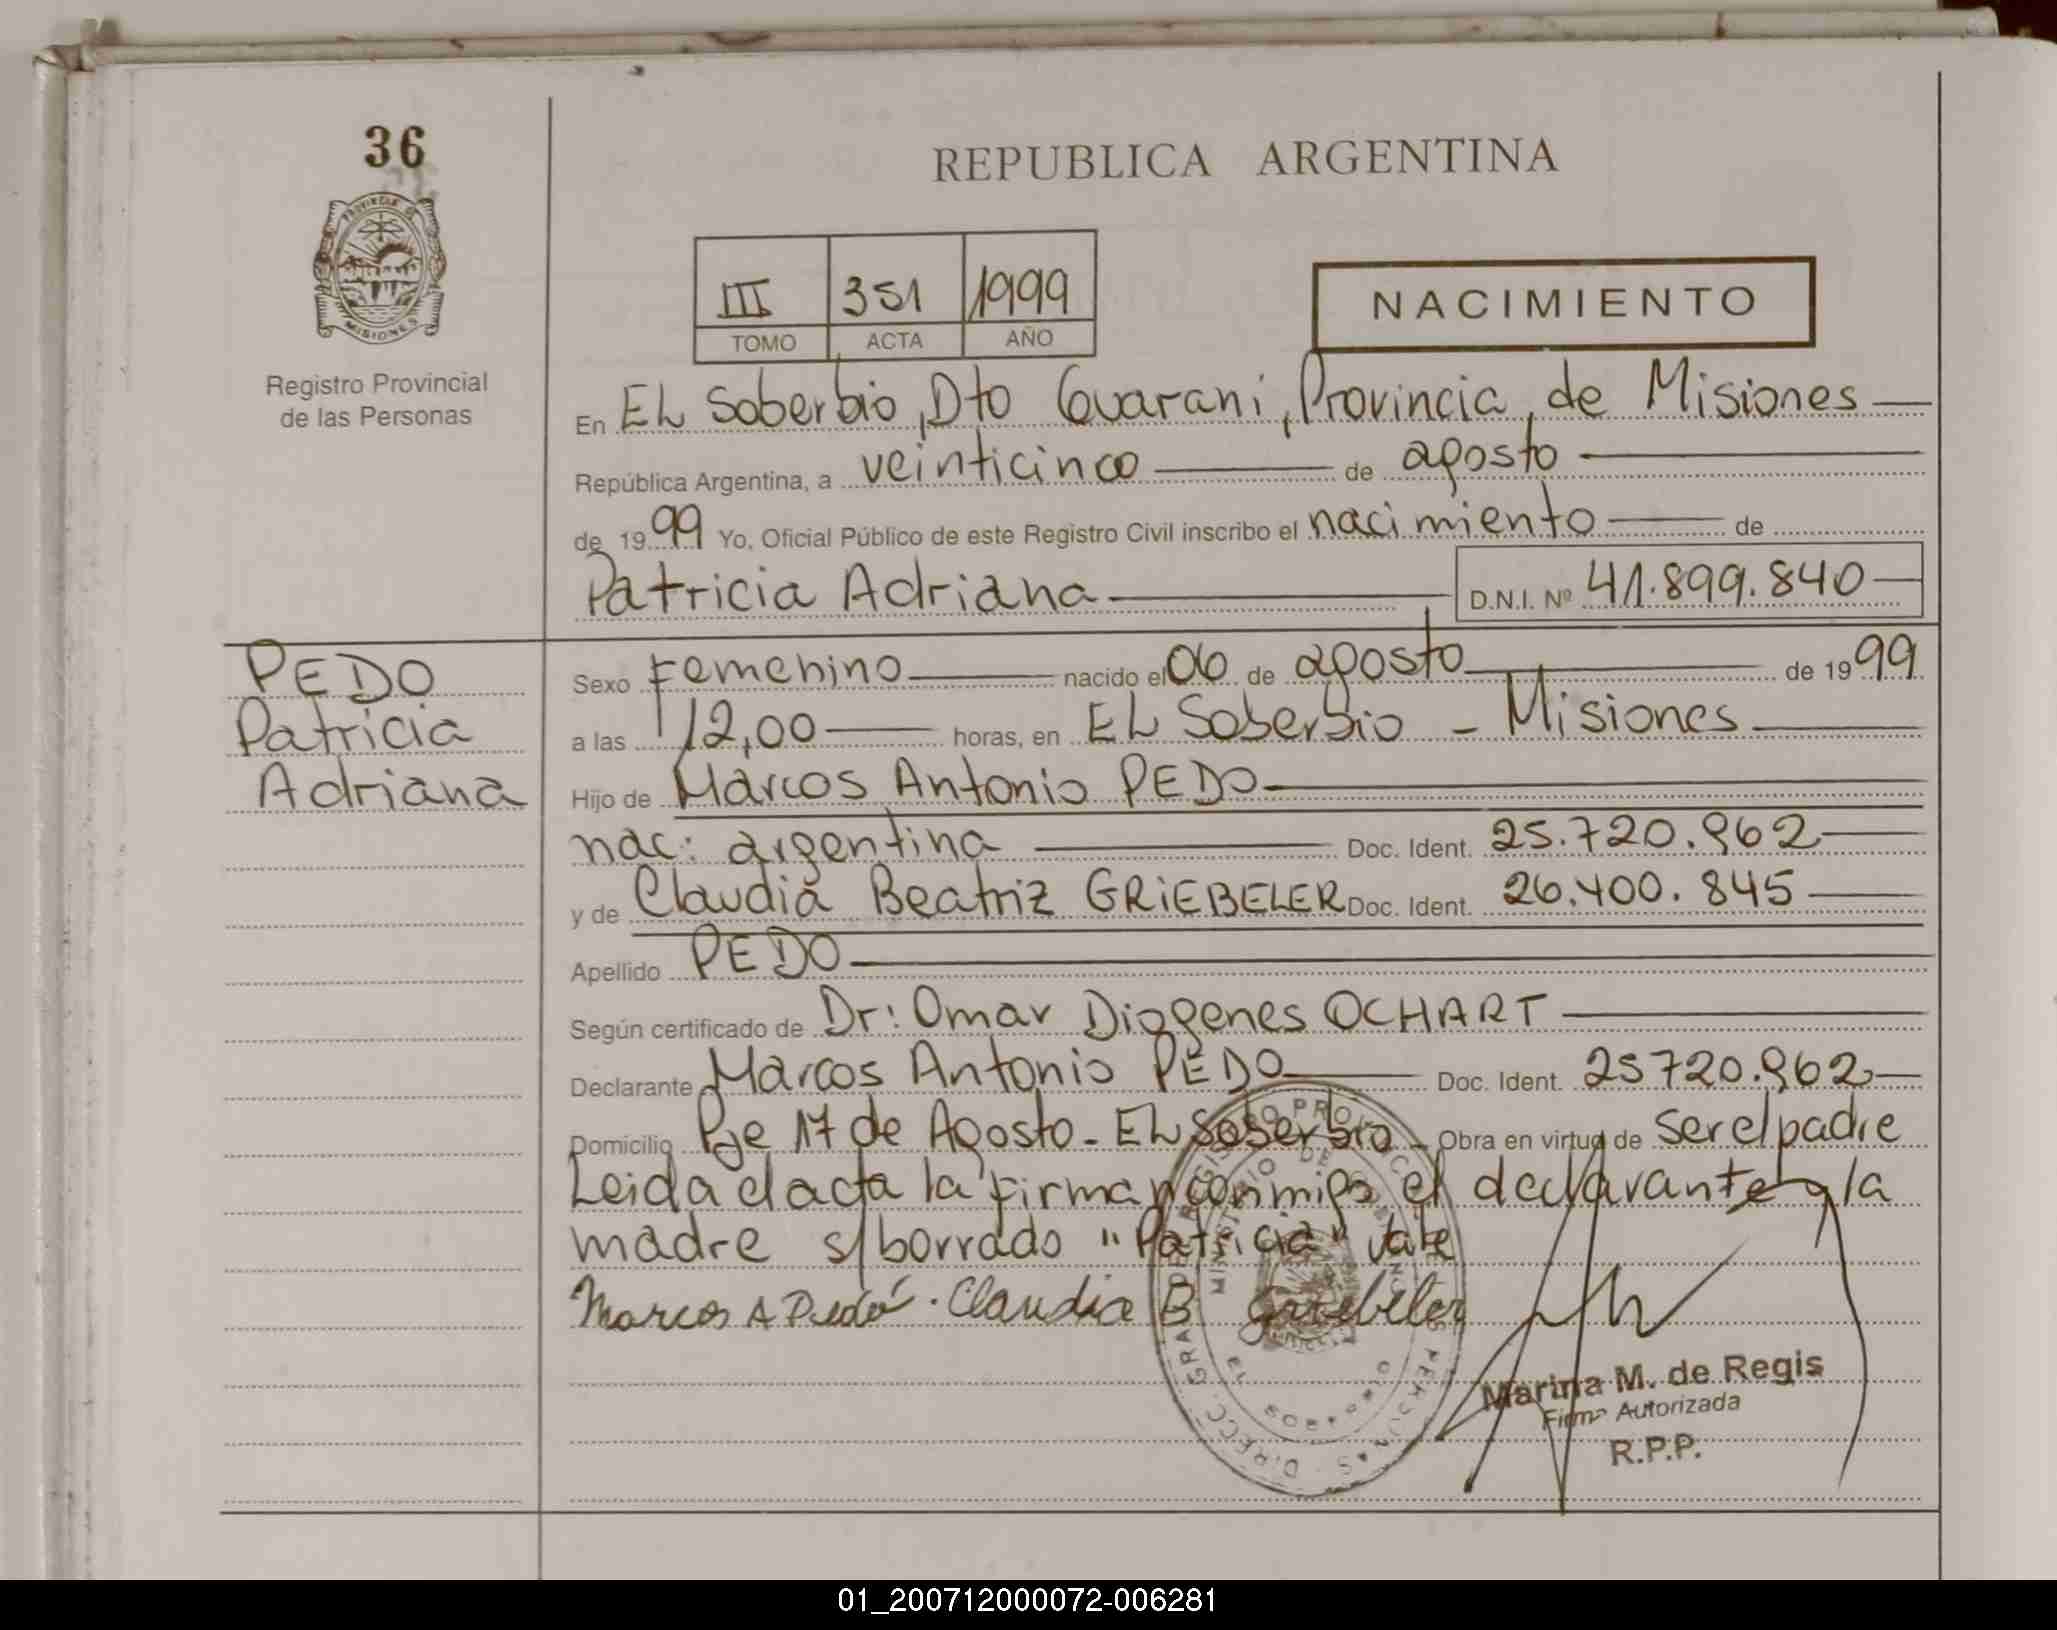 36
REPUBLICA ARGENTINA
PROVINCIA DE
MISIONES
Registro Provincial
de las Personas
III 351 1999
TOMO ACTA AÑO
NACIMIENTO
En EL Soberbio, Dto Guaraní, Provincia de Misiones
República Argentina, a veinticinco de agosto
de 1999 Yo, Oficial Público de este Registro Civil inscribo el nacimiento de
Patricia Adriana D.N.I. Nº 41.899.840
PEDO
Patricia
Adriana
Sexo Femenino nacido el 06 de agosto de 1999
a las 12,00 horas, en EL Soberbio - Misiones
Hijo de Marcos Antonio PEDO
nac: argentina Doc. Ident. 25.720.962
y de Claudia Beatriz GRIEBELER Doc. Ident. 26.400.845
Apellido PEDO
Según certificado de Dr: Omar Diogenes OCHART
Declarante Marcos Antonio PEDO Doc. Ident. 25720.962
Domicilio Pje 17 de Agosto - EL Soberbio - Obra en virtud de ser el padre
Leida el acta la firman conmigo el declarante y la
madre s/borrado "Patricia" vale
Marcos A Pedó. Claudia B Griebeler
Marina M. de Regis
Firma Autorizada
R.P.P.
01_200712000072-006281